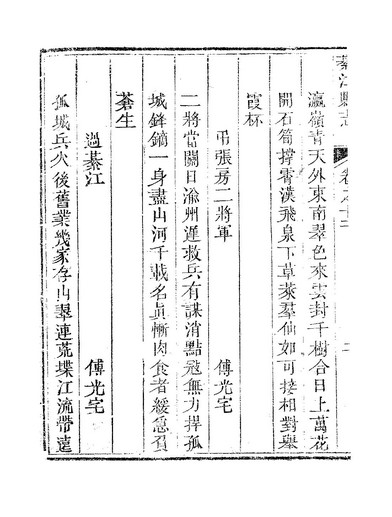 綦江縣志 卷之十二
瀛嶺青天外東南翠色來雲封千樹合日上萬花
開石筍撐霄漢飛泉下草萊羣仙如可接相對舉
霞杯
弔張房二將軍 傅光宅
二將當關日渝州遲救兵有謀消點寇無力捍孤
城鋒鏑一身盡山河千載名眞慚肉食者緩急負
蒼生
過綦江 傅光宅
孤城兵火後舊業幾家存山翠連荒堞江流帶遠